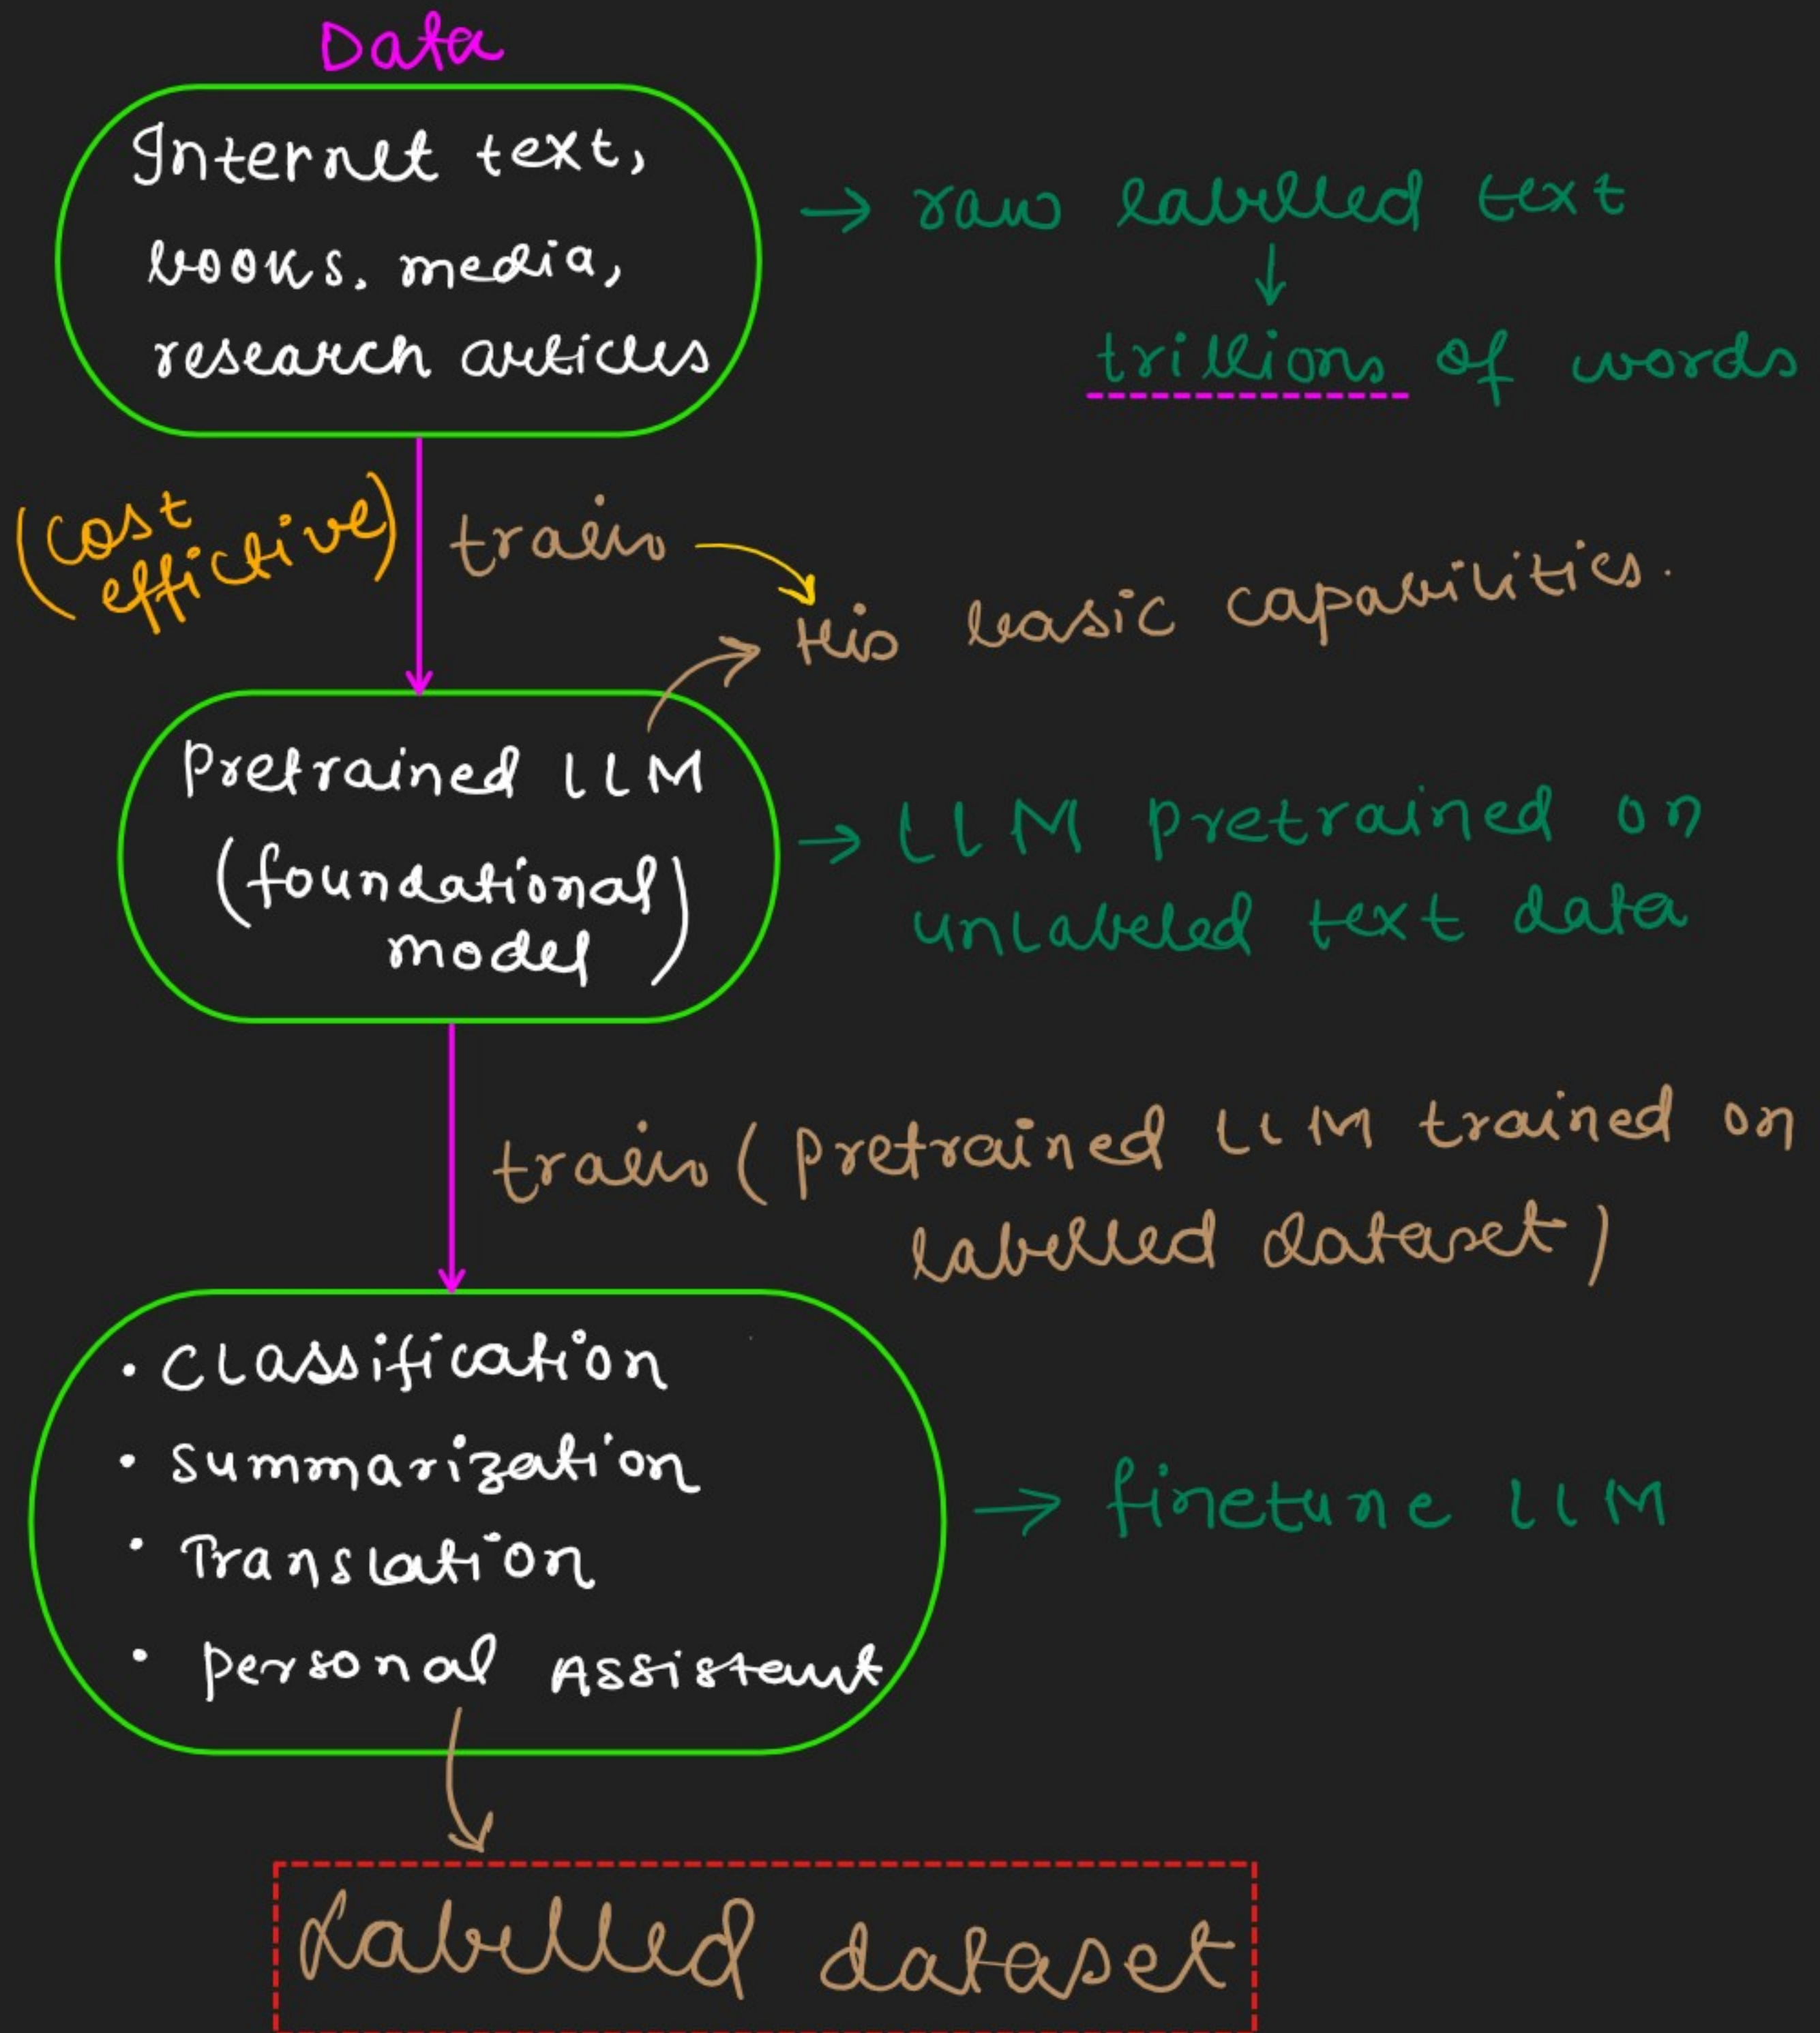 Data
Internet text,
books, media,
research articles
→ raw labelled text
↓
trillions of words
(cost
effictive)
train
this basic capabilities.
pretrained LLM
(foundational
model)
→ LLM pretrained on
unlabeled text data
train (pretrained LLM trained on
labelled dataset)
• Classification
• Summarization
• Translation
• personal Assistant
→ finetune LLM
Labelled dataset